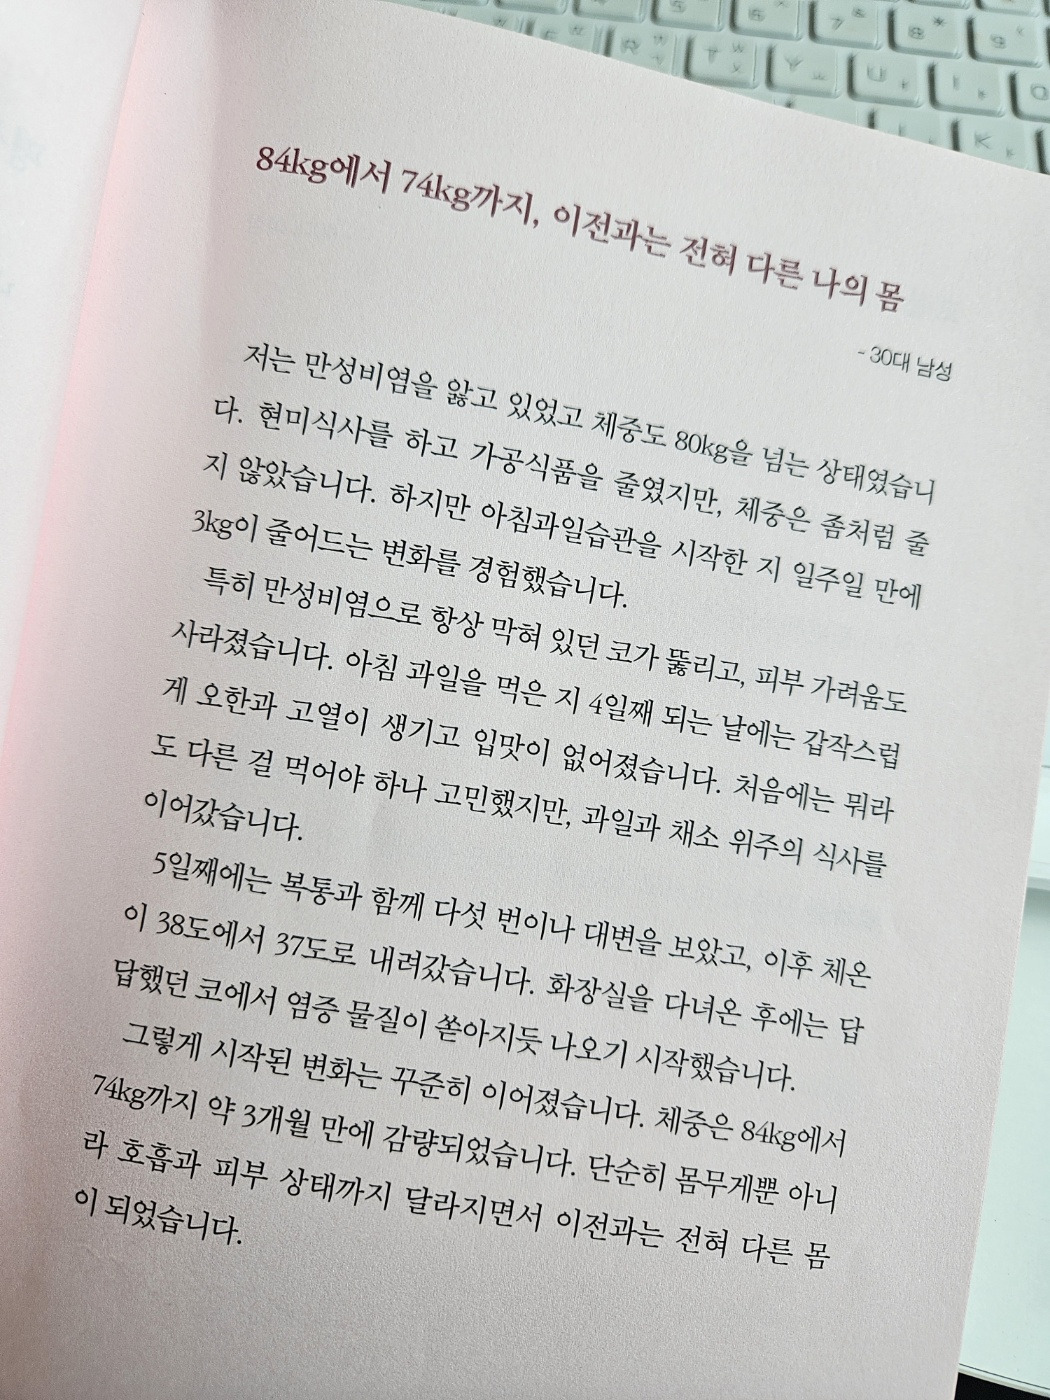 84kg에서 74kg까지, 이전과는 전혀 다른 나의 몸
- 30대 남성
저는 만성비염을 앓고 있었고 체중도 80kg을 넘는 상태였습니
다. 현미식사를 하고 가공식품을 줄였지만, 체중은 좀처럼 줄
지 않았습니다. 하지만 아침과일습관을 시작한 지 일주일 만에
3kg이 줄어드는 변화를 경험했습니다.
특히 만성비염으로 항상 막혀 있던 코가 뚫리고, 피부 가려움도
사라졌습니다. 아침 과일을 먹은 지 4일째 되는 날에는 갑작스럽
게 오한과 고열이 생기고 입맛이 없어졌습니다. 처음에는 뭐라
도 다른 걸 먹어야 하나 고민했지만, 과일과 채소 위주의 식사를
이어갔습니다.
5일째에는 복통과 함께 다섯 번이나 대변을 보았고, 이후 체온
이 38도에서 37도로 내려갔습니다. 화장실을 다녀온 후에는 답
답했던 코에서 염증 물질이 쏟아지듯 나오기 시작했습니다.
그렇게 시작된 변화는 꾸준히 이어졌습니다. 체중은 84kg에서
74kg까지 약 3개월 만에 감량되었습니다. 단순히 몸무게뿐 아니
라 호흡과 피부 상태까지 달라지면서 이전과는 전혀 다른 몸
이 되었습니다.